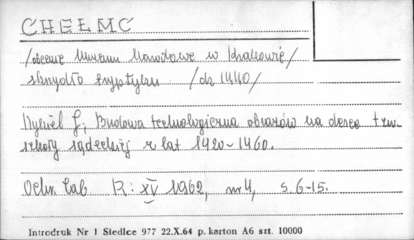 CHEŁMC
/obecne Muzeum Narodowe w Krakowie/
skrzydło tryptyku /ok 1440/
Nykiel J, Budowa technologiczna obrazów na desce t.zw.
szkoły sądeckiej z lat 1420-1460.
Ochr. Zab R: XV 1962, nr 4, s. 6-15.
Introdruk Nr 1 Siedlce 977 22.X.64 p. karton A6 szt. 10000